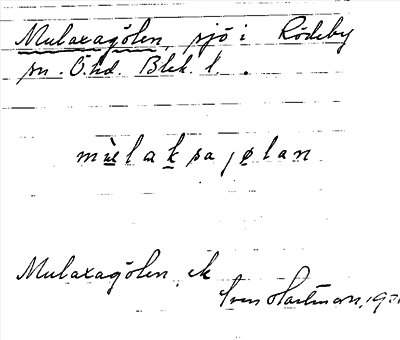 Mulaxagölen, sjö i Rödeby
sn. Ö. hd. Blek. l.
mulaksajølan
Mulaxagölen, ek
Sven Hartman,